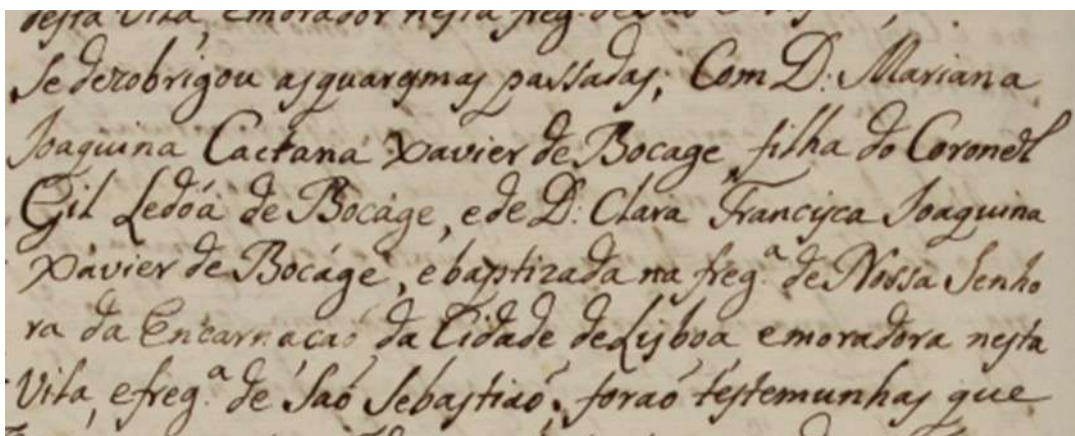 desta Vila, emorador nesta freg.
Se dezobrigou asquaresmas passadas; Com D. Mariana
Joaquina Caetana Xavier de Bocage, filha do Coronel
Gil Ledóá de Bocáge, ede D. Clara Francisca Joaquina
Xavier de Bocáge, ebaptizada na freg.ª de Nossa Senho
ra da Encarnaçaõ da Cidade deLisboa emoradora nesta
Vila, efreg.ª de Saõ Sebastiaõ; foraõ testemunhas que